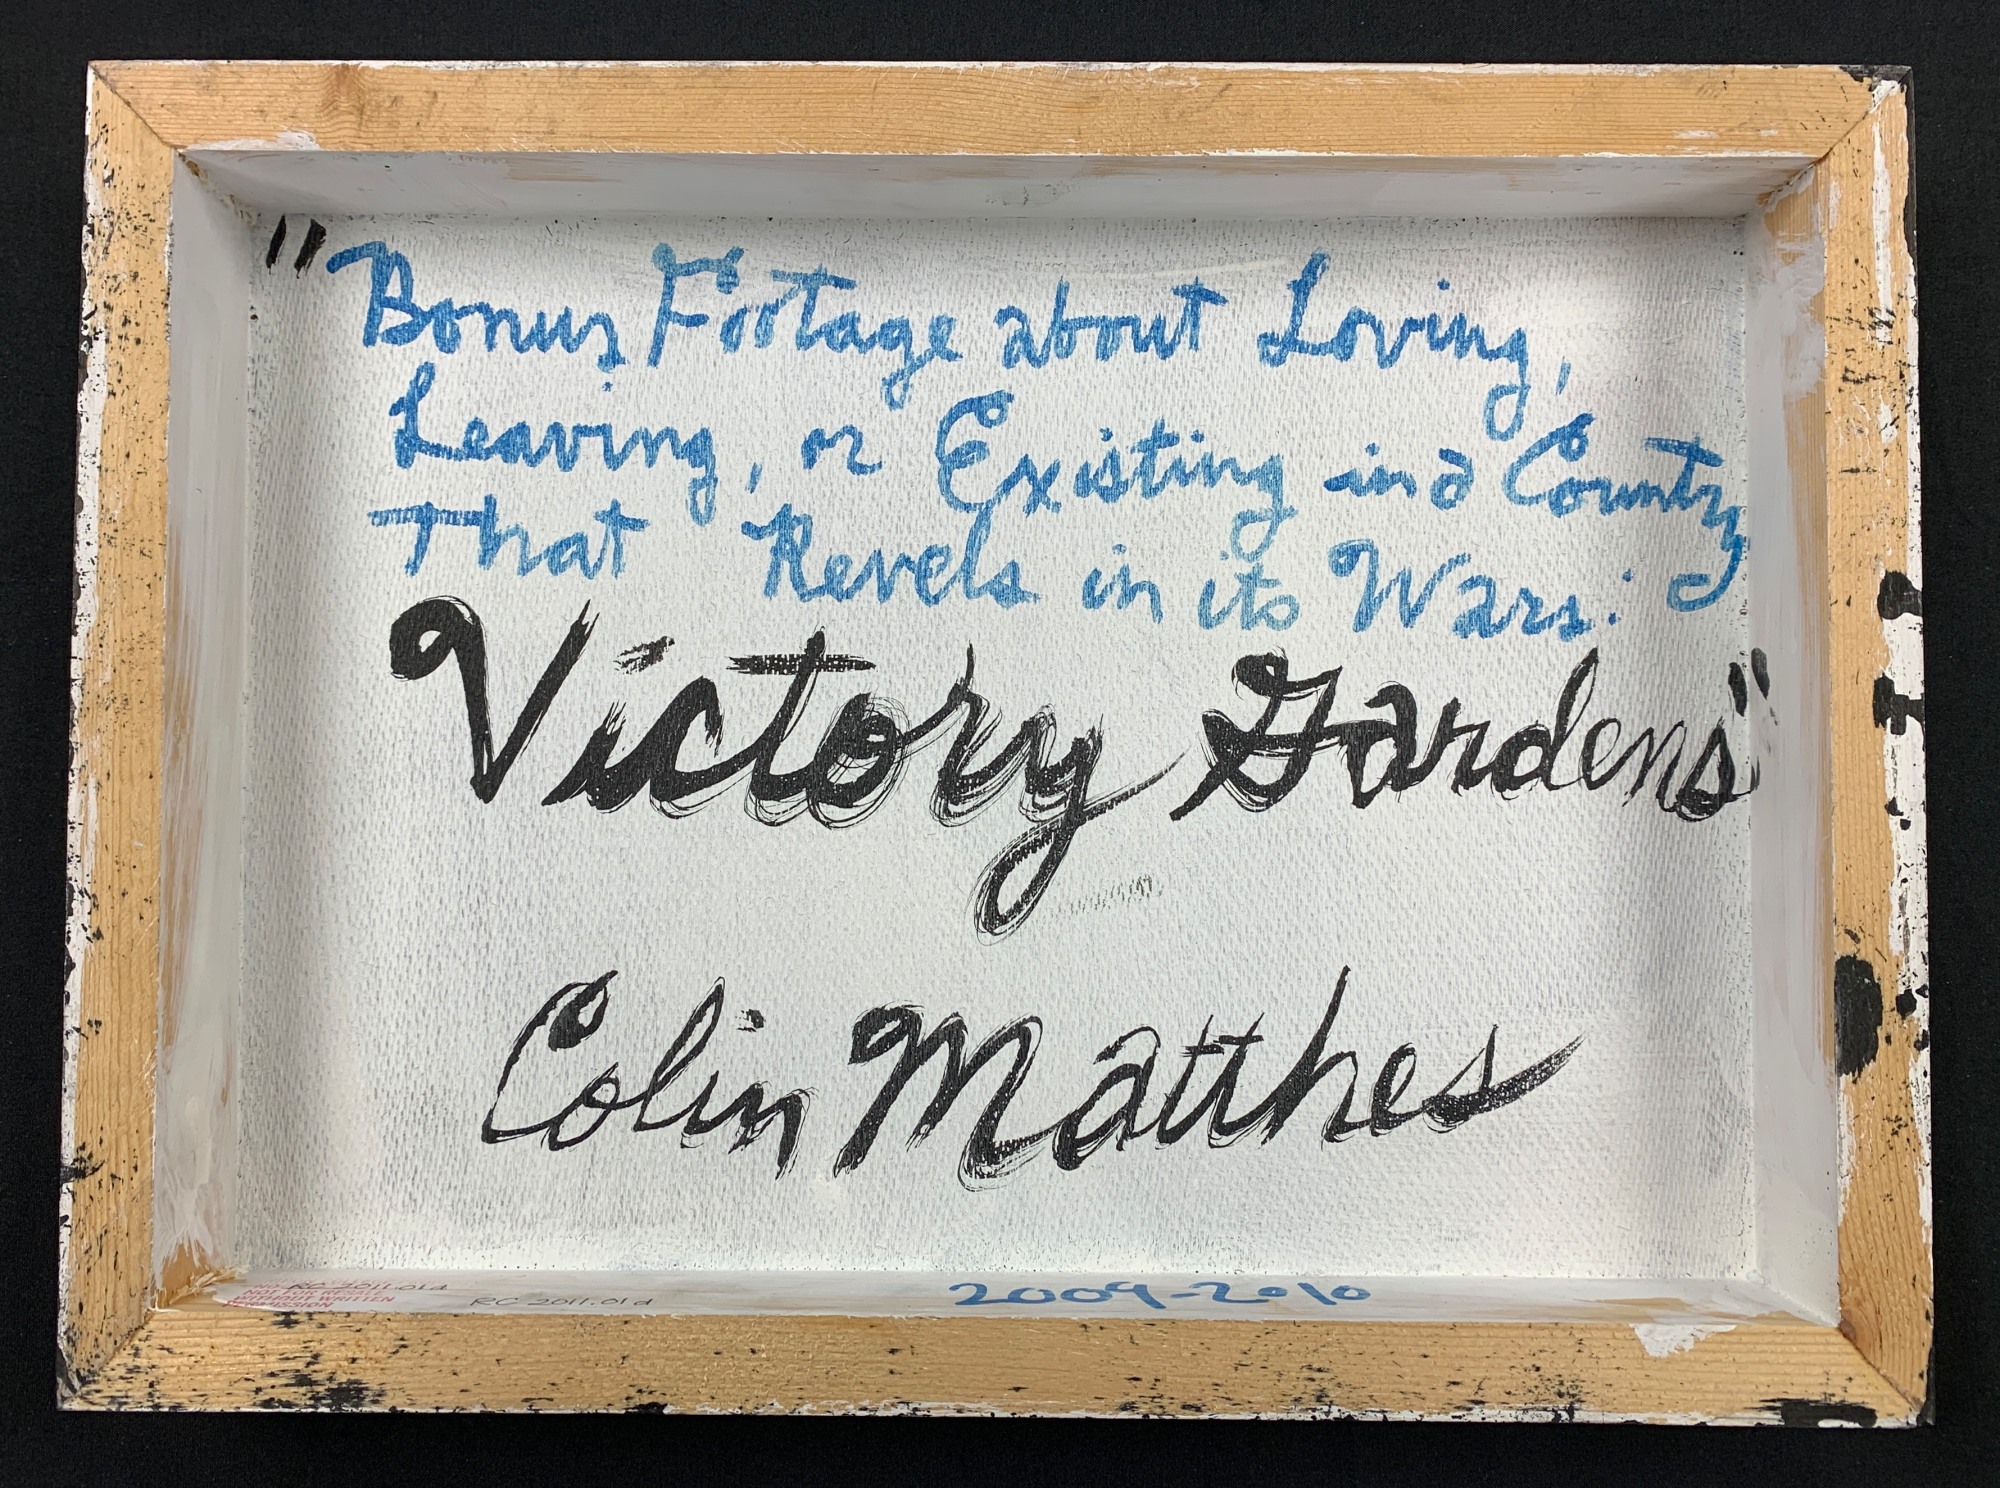 "Bonus Footage about Loving,
Leaving, or Existing in a Country
That Revels in its Wars:
Victory Gardens"
Colin Matthes
2009-2010
RC 2011.01d
RC 2011.01d
NOT FOR RESALE
WITHOUT WRITTEN
PERMISSION